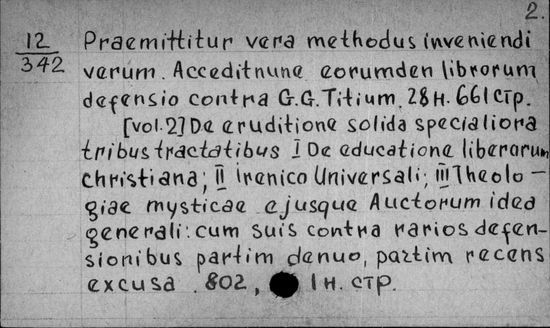 2.
12 Praemittitur vera methodus inveniendi
342 verum. Acceditnunc eorumden librorum
defensio contra G.G.Titium. 28 н. 661 стр.
[vol.2] De eruditione solida specialiora
tribus tractatibus I De educatione liberorum
christiana; II Irenico Universali; III Theolo-
giae mysticae ejusque Auctorum idea
generali: cum suis contra varios defen-
sionibus partim denuo, partim recens
excusa . 802, 1 н. стр.